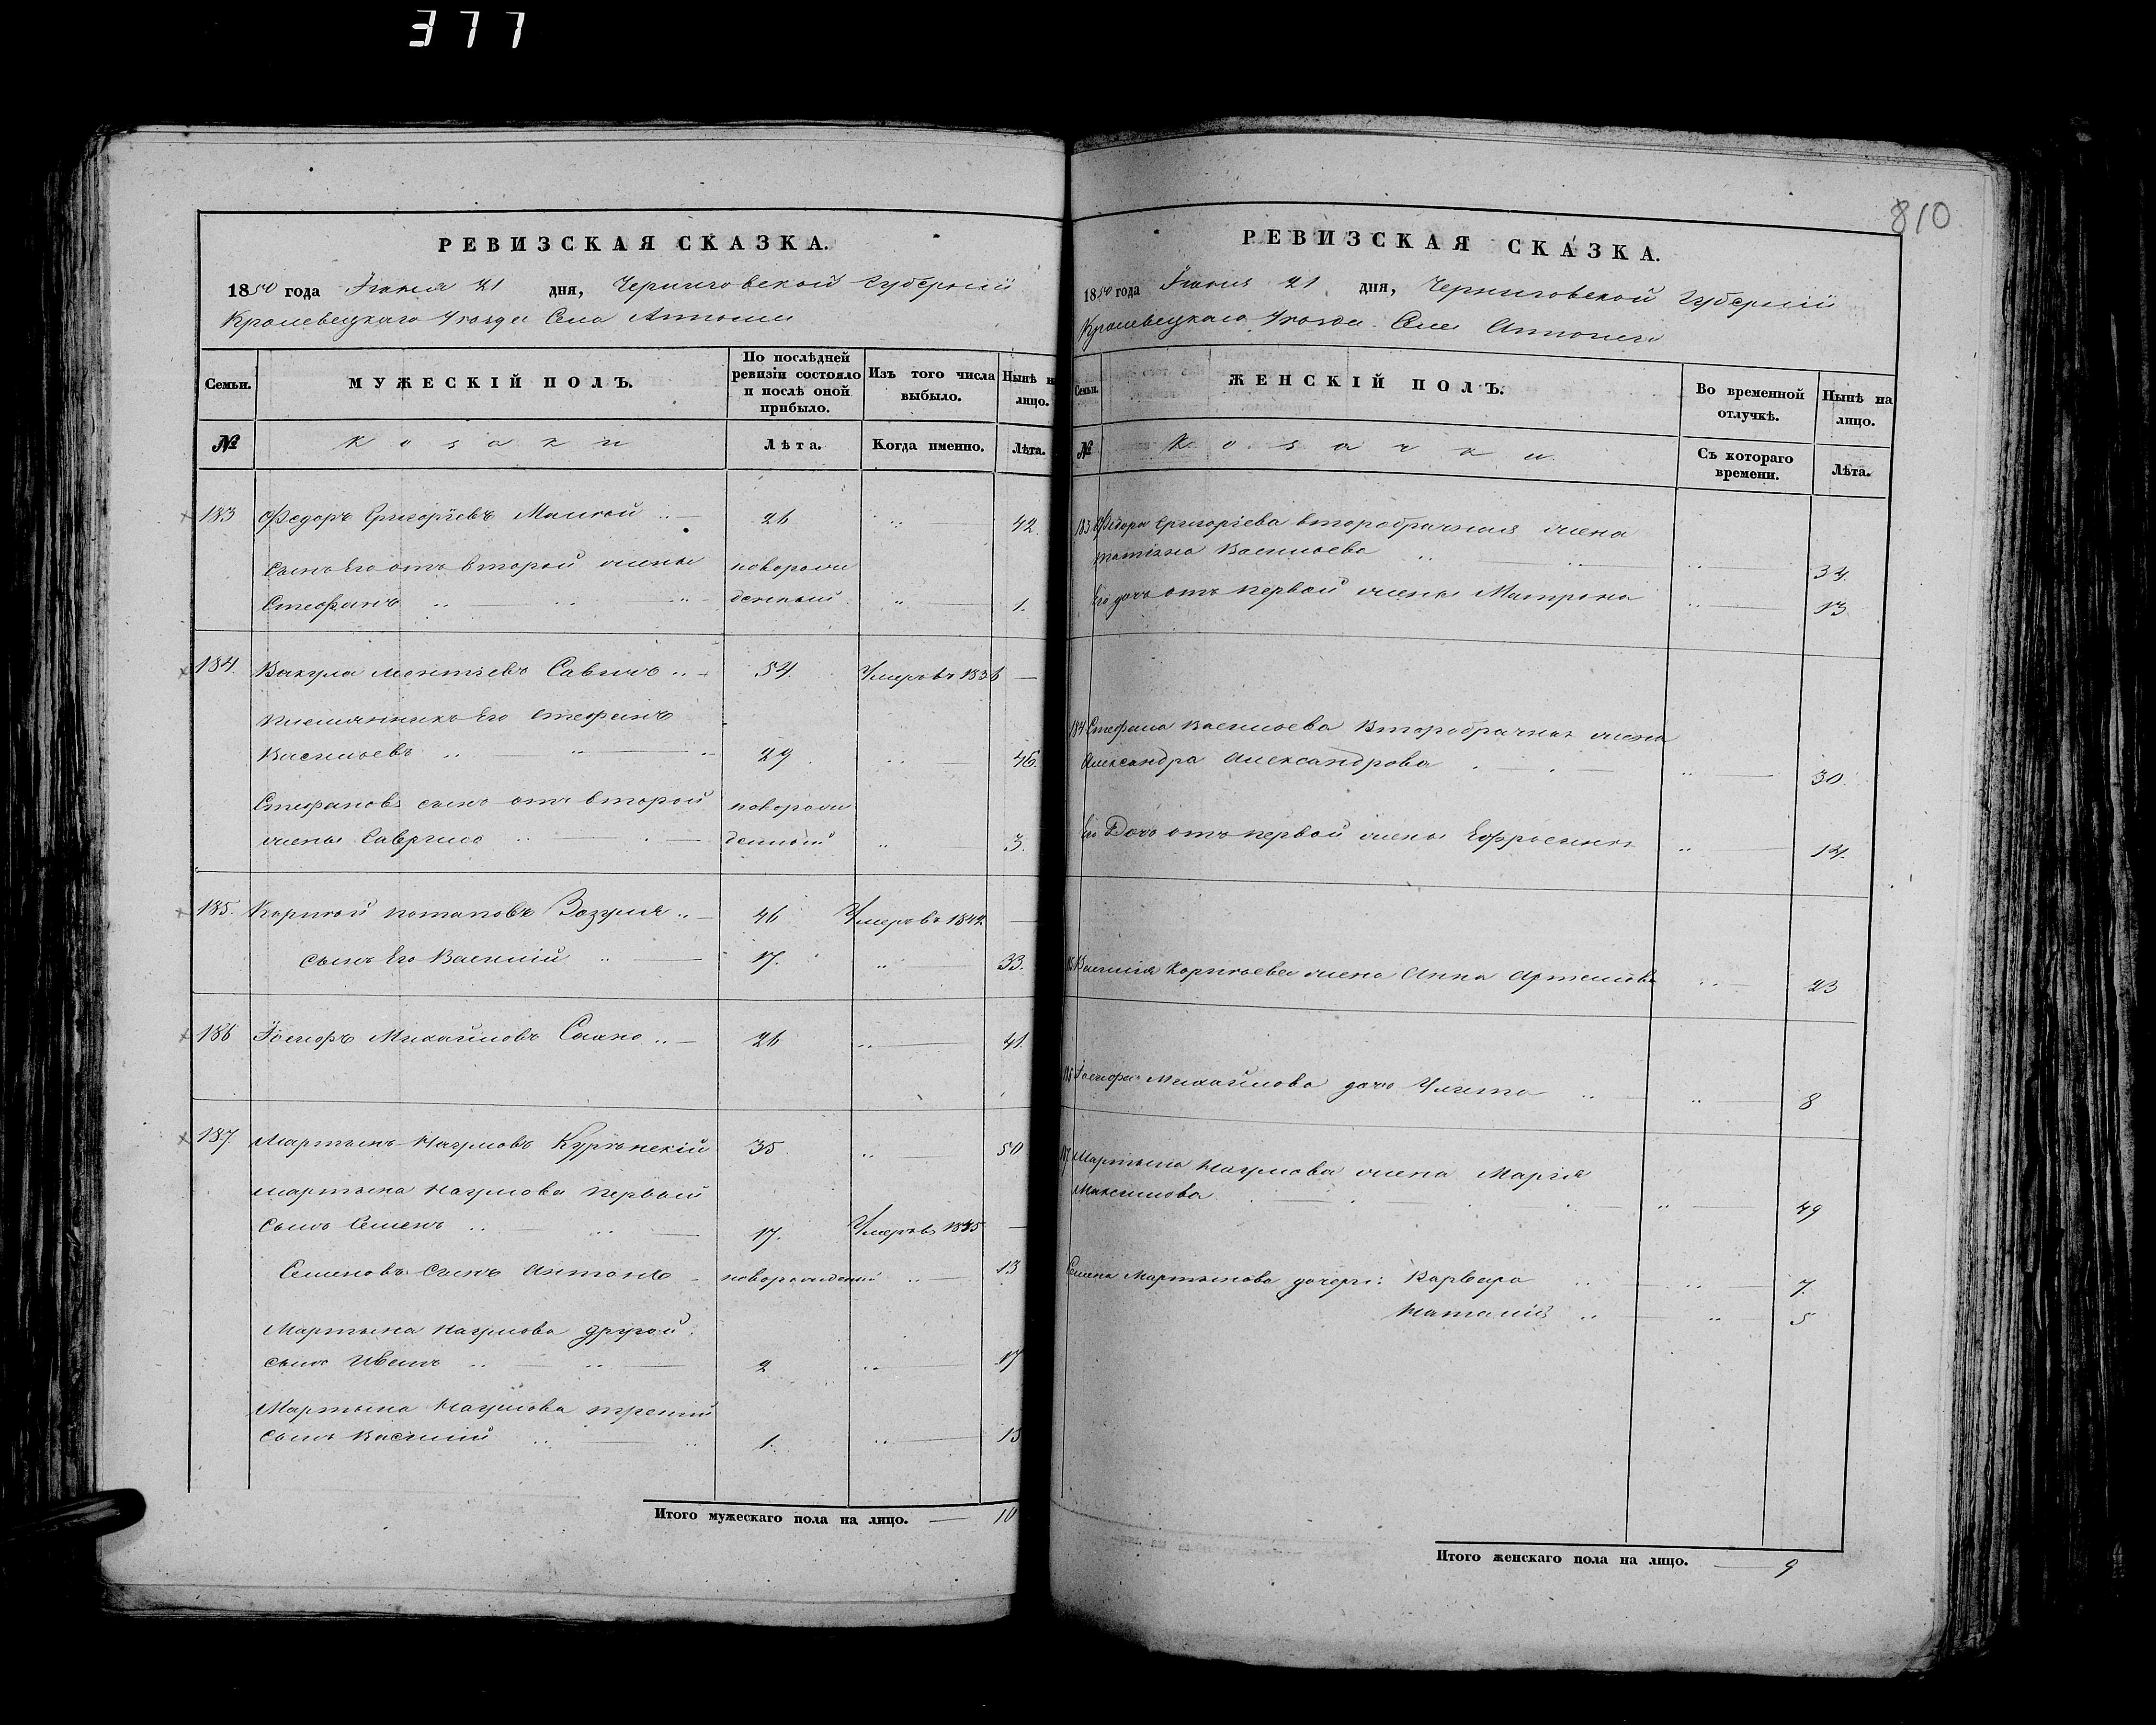 377
РЕВИЗСКАЯ СКАЗКА.
1850 года Іюня 21 дня, Черниговской Губерніи
Кролевецкаго Уезда Села
Семьи. МУЖЕСКІЙ ПОЛЪ. По послѣдней ревизіи состояло и послѣ оной прибыло. Изъ того числа выбыло. Нынѣ на лицо.
№ Козаки Лѣта. Когда именно. Лѣта.
183 Федоръ Григоріевъ 26 42.
Сынъ Его отъ второй жены новорож
Стефанъ денный 1.
184. Вакула Леонтіевъ Савичъ 54. Умеръ въ 1836
племянникъ Его Стефанъ
Васильевъ 29 46.
Стефановъ сынъ отъ второй новорож
жены денный 3.
185. Карпъ Потаповъ Зазуля 46 Умеръ въ 1842
сынъ Его Василій 17. 33.
186 Іосифъ Михайловъ 26 41.
187. Мартынъ Наумовъ 35 50
Мартына Наумова первый
сынъ Семенъ 17. Умеръ въ 1845
Семеновъ сынъ Антонъ новорожденый 13
Мартына Наумова другой
сынъ Иванъ 2 17
Мартына Наумова третій
сынъ Василій 1. 15
Итого мужескаго пола на лицо. 10
810
РЕВИЗСКАЯ СКАЗКА.
1850 года Іюня 21 дня, Черниговской Губерніи
Кролевецкаго Уезда Села
Семьи. ЖЕНСКІЙ ПОЛЪ. Во временной отлучкѣ. Нынѣ на лицо.
№ Козачки Съ котораго времени. Лѣта.
183 Федора Григоріева второбрачная жена
Татіяна Васильева 34.
Его дочь отъ первой жены Матрона 13
184 Стефана Васильева Второбрачная жена
Александра Александрова 30.
Его Дочь отъ первой жены 14.
185 Василія жена Анна Артемова 23
186 Іосифа Михайлова дочь Улита 8
187 Мартына Наумова жена Марія
Максимова 49
Семена Мартынова дочери: Варвара 7.
Наталія 5
Итого женскаго пола на лицо. 9